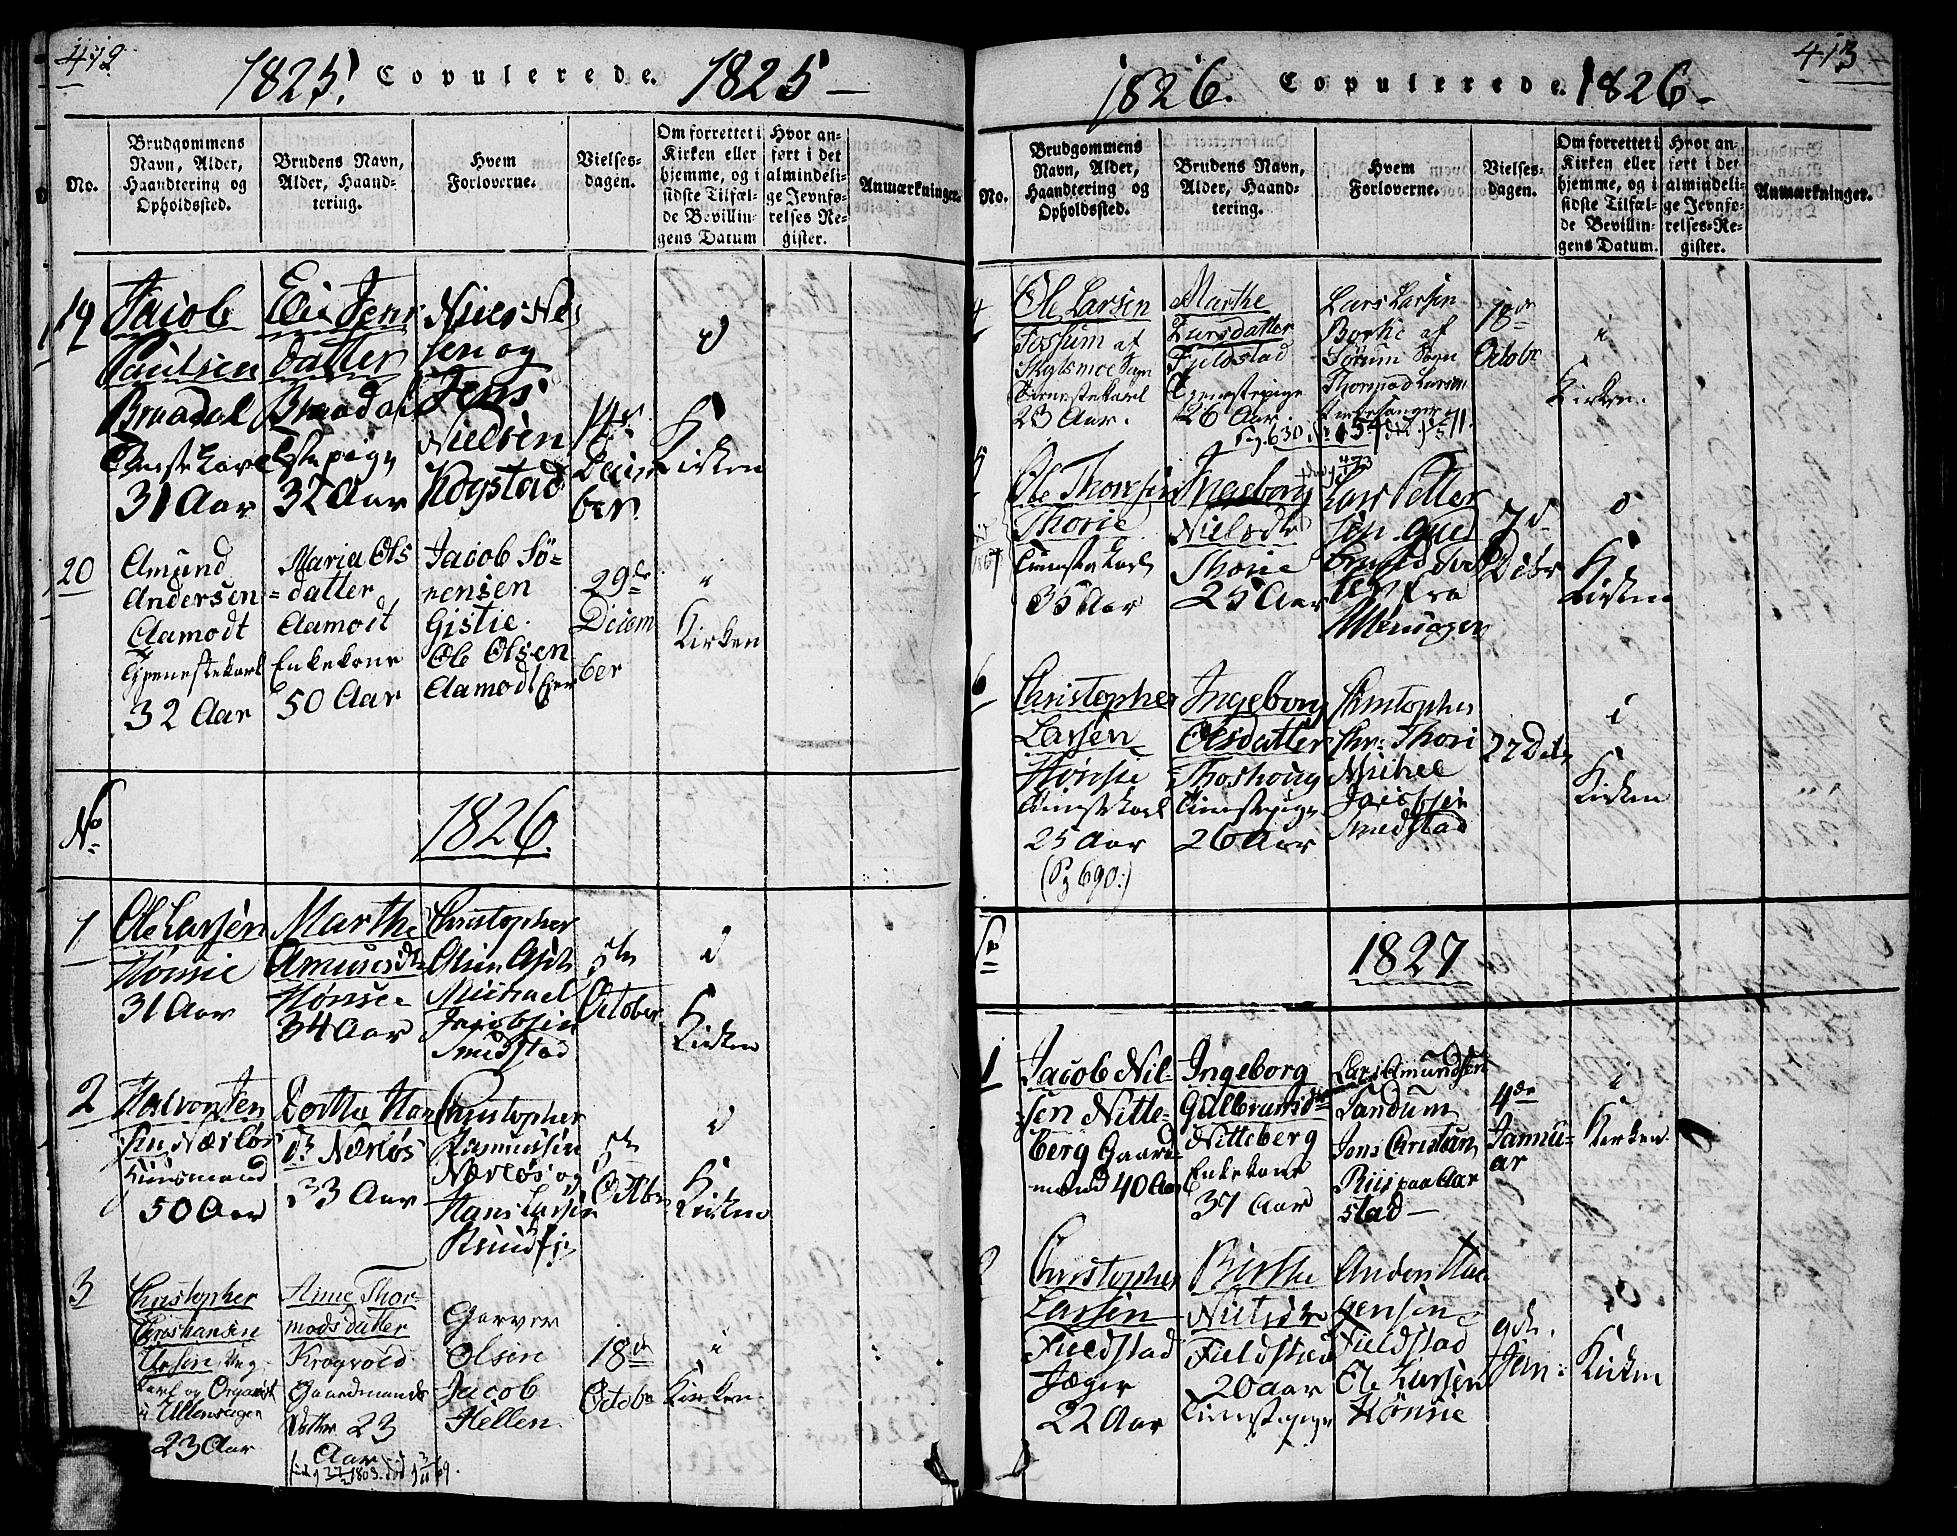 412.
1825. Copulerede. 1825
No.
Brudgommens
Navn, Alder,
Haandtering og
Opholdssted.
Brudens Navn,
Alder, Haand-
tering.
Hvem
Forloverne.
Vielses-
dagen.
Om forrettet i
Kirken eller
hjemme, og i
sidste Tilfæl-
de Bevillin-
gens Datum
Hvor an-
ført i det
almindeli-
ge Jevnfø-
relses-Re-
gister.
Anmærkninger.
19
Jacob
Paulsen
Braadal
31 Aar
datter
Braadal
32 Aar
sen og
Jens
Nielsen
Kogstad
ber
i
Kirken
20
Amund
Andersen
Aamodt
Tjenestekarl
32 Aar
Maria Ols
=datter
Aamodt
Enkekone
50 Aar
Jacob Sö-
rensen
Gistie.
Ole Olsen
Aamodt Eier
29de
Decem
ber
Kirken
No
1826.
1
Ole Larsen
Hönsie
31 Aar
Marthe
Amundsdtr
Hönsie
34 Aar
Christopher
Olsen
Michael
Jacobsen
Smedstad
5te
October
i
Kirken
2
Halvor Jen
sen Nærlös
Huusmand
50 Aar
Dorthe Han
dr Nærlös
33 Aar
Christopher
Rasmussen
Nærlös og
Hans Larsen
5te
Octbr
i
Kirken
3
Christopher
Christiansen
Karl og Organist
i Ullensager
23 Aar
Anne Thor-
modsdatter
Krogvold
Gaardmands
Datter 23
Aar
Garver
Olsen
Jacob
Hellen.
18de
October
i
Kirken.
413
1826. Copulerede. 1826
No.
Brudgommens
Navn, Alder,
Haandtering og
Opholdssted.
Brudens Navn,
Alder, Haand-
tering.
Hvem
Forloverne.
Vielses-
dagen.
Om forrettet i
Kirken eller
hjemme, og i
sidste Tilfæl-
de Bevillin-
gens Datum.
Hvor an-
ført i det
almindeli-
ge Jevnfø-
relses-Re-
gister.
Anmærkninger.
4
Ole Larsen
Fossum af
Tjenestekarl
23 Aar.
Marthe
Larsdatter
Fjeldstad
Tjenestepige
26 Aar.
Lars Larsen
Borke af
Sörum Sogn
Kirkesanger
18de
October
i
Kirken.
Ole Thorsen
Thorie
Tienestekarl
35 Aar
Ingeborg
Nielsdr
Thorie
25 Aar
Lars Petter
fra
Ullensager
7de
Debr
i
Kirken
6
Christopher
Larsen
Hönsie
Tienestekarl
25 Aar
(Pg 690:)
Ingeborg
Olsdatter
Tienestepige
26 Aar
Christopher
Chr: Thori
Michel
Jacobsen
Smedstad
27 Debr
i
Kirken
1827
1
Jacob Nil-
sen Nitte-
berg Gaard
mand 40 Aar
Ingeborg
Gulbrandsdtr
Nitteberg
Enkekone
37 Aar
Lars Amundsen
Landum
Jens Christian
Riis paa Aar
stad
4de
Janu-
ar
i
Kirken
2
Christopher
Larsen
Fieldstad
Jæger
22 Aar
Birthe
Nielsdr
Fieldstad
20 aar
Tienestepige
Anders Haa
gensen
Fieldstad
Ole Larsen
Hönsie
9de.
Jan:
i
Kirken